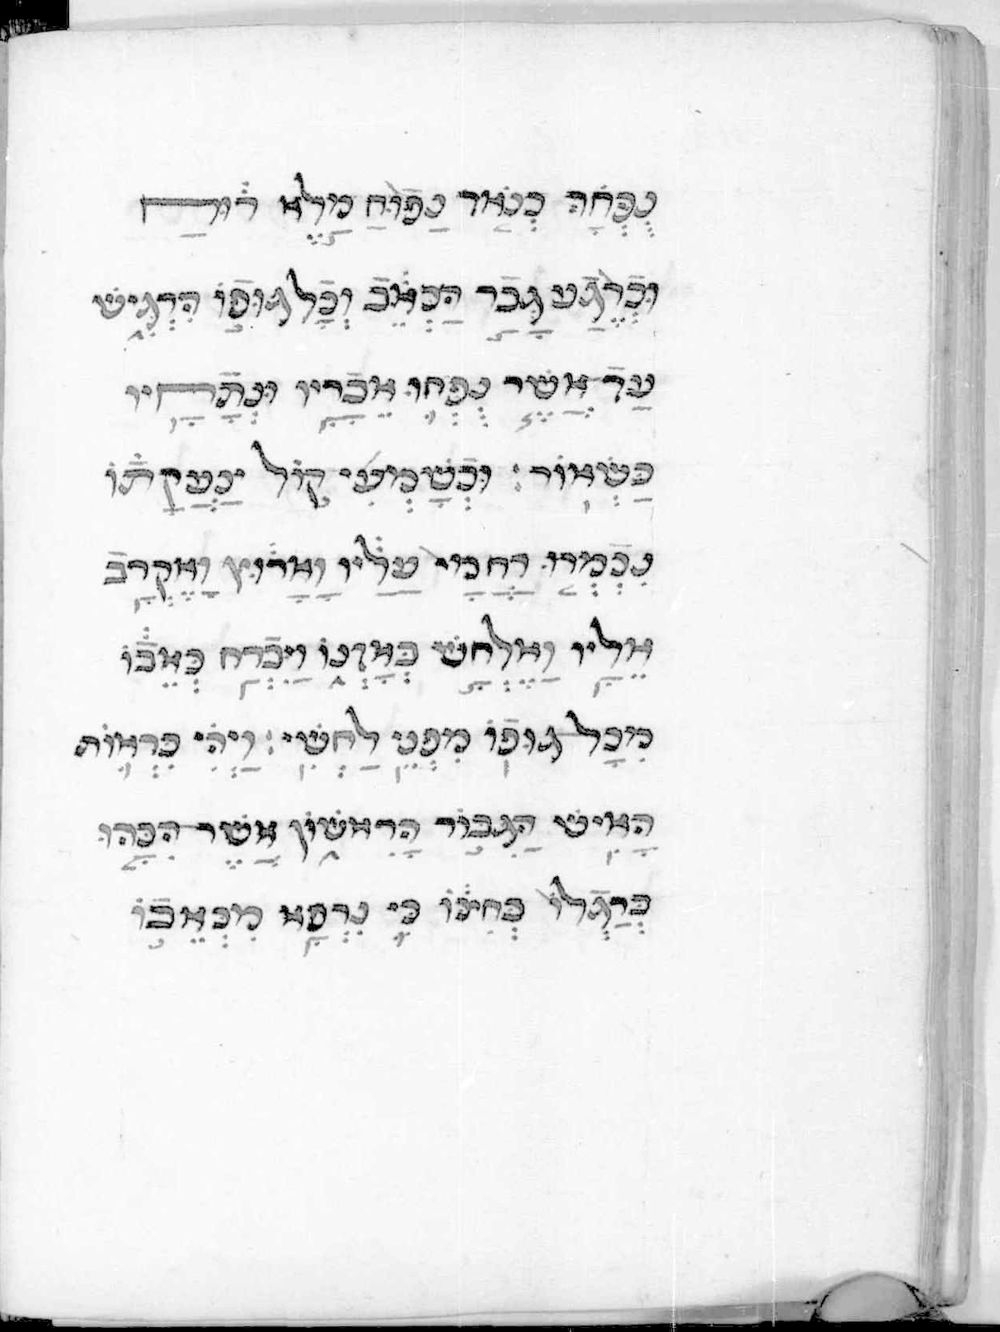 נֶפְּחָה כְּנֹאד נָפוּחַ מָלֵא רוּחַ
וּכְרֶגַע גָּבַר הַכְּאֵב וְכָל גּוּפוֹ הִרְגִּישׁ
עַד אֲשֶׁר נִפְּחוּ אֵבָרָיו וּנְתָחָיו
כַּשְּׂאוֹר׃ וּכְשָׁמְעִי קוֹל יַכַעֲקָתוֹ
נִכְמְרוּ רַחֲמַי עָלָיו וָאָרוּץ וָאֶקְרַב
אֵלָיו וַאֶלְחַשׁ בְּאָזְנוֹ וַיִּבְרַח כְּאֵבוֹ
מִכָּל גּוּפוֹ מִפְּנֵי לַחְשִׁי׃ וַיְהִי כִּרְאוֹת
הָאִישׁ הַגִּבּוֹר הָרִאשׁוֹן אֲשֶׁר הִכָּהוּ
בְּרַגְלוֹ בְּחִנּוֹ כִּי נִרְפָּא מִכְּאֵבוֹ